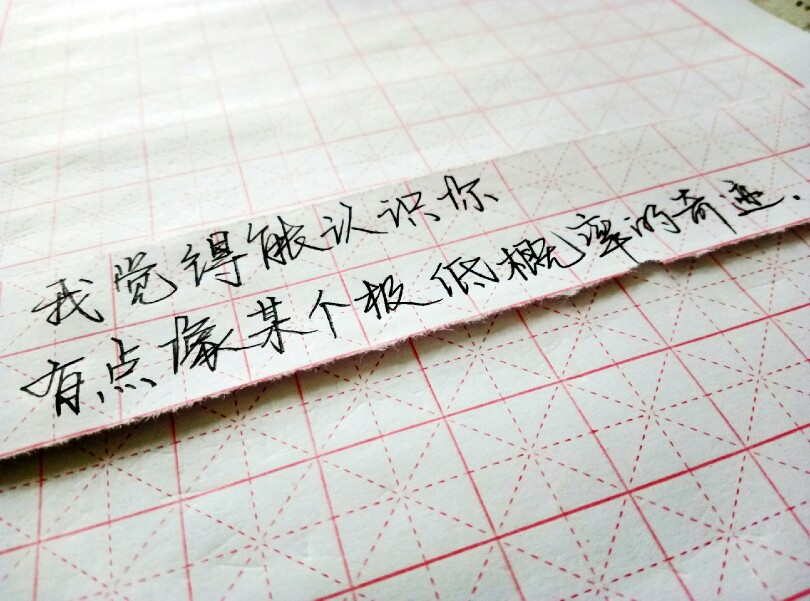 我觉得能认识你
有点像某个极低概率的奇迹.